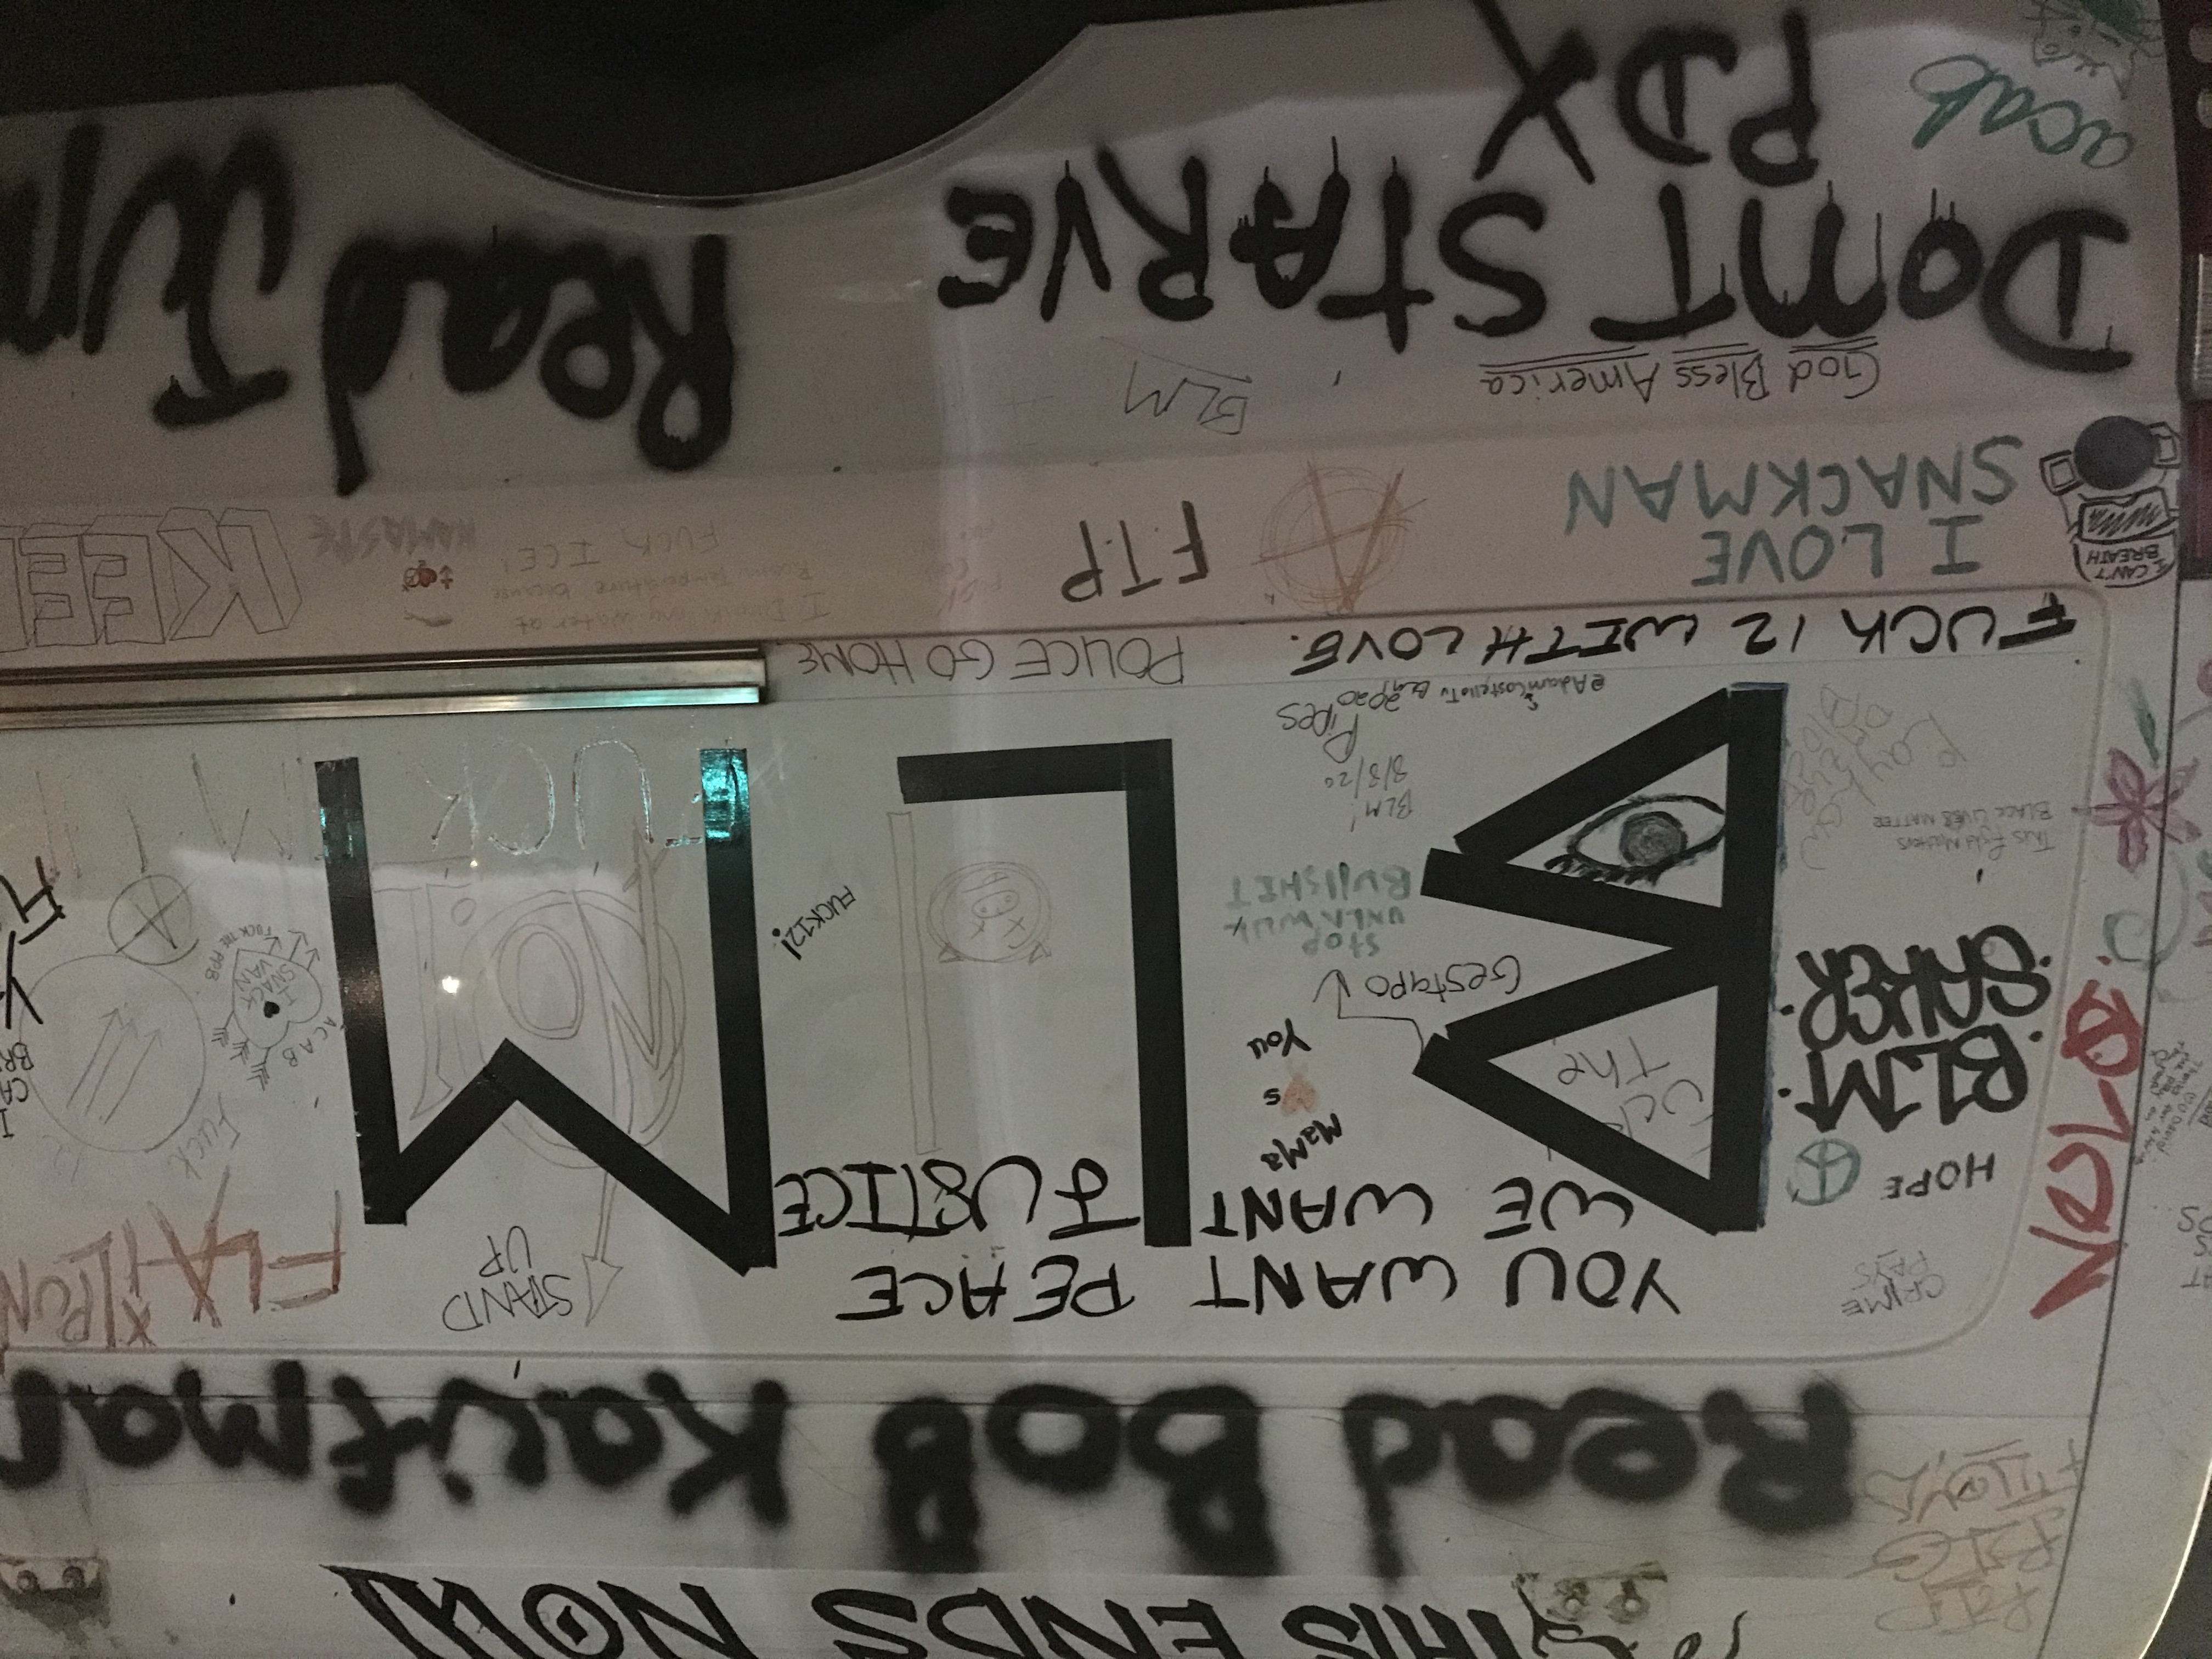 THIS ENDS NOW
RIP
BIG
FLOYD
Read BoB Kaufman
CRIME
PAYS
YOU WANT PEACE
WE WANT JUSTICE
STAND
UP
HOPE
BLM
SAKER
Fuck
The
Gestapo
MaMa
♥s
You
STOP
UNLAWFUL
BUllSHIT
FUCK 12!
NO!
FUCK
Fuck
12
A.C.A.B
I ♥
SNACK
VAN
FUCK THE PPB
A
This Fight Matters
BLACK LIVES MATTER
BLM!
8/8/20
Pipes
2020
@AdamCostelloTv
BLM
FUCK 12 WITH LOVE.
POLICE GO HOME
I CAN'T
BREATH
I LOVE
SNACKMAN
A
F.T.P
I Drink my water at
Room Temperature because
FUCK ICE!
NAMASTE
KEE
God Bless America
BLM
DonT StARVE
PDX
Read Jun
acab